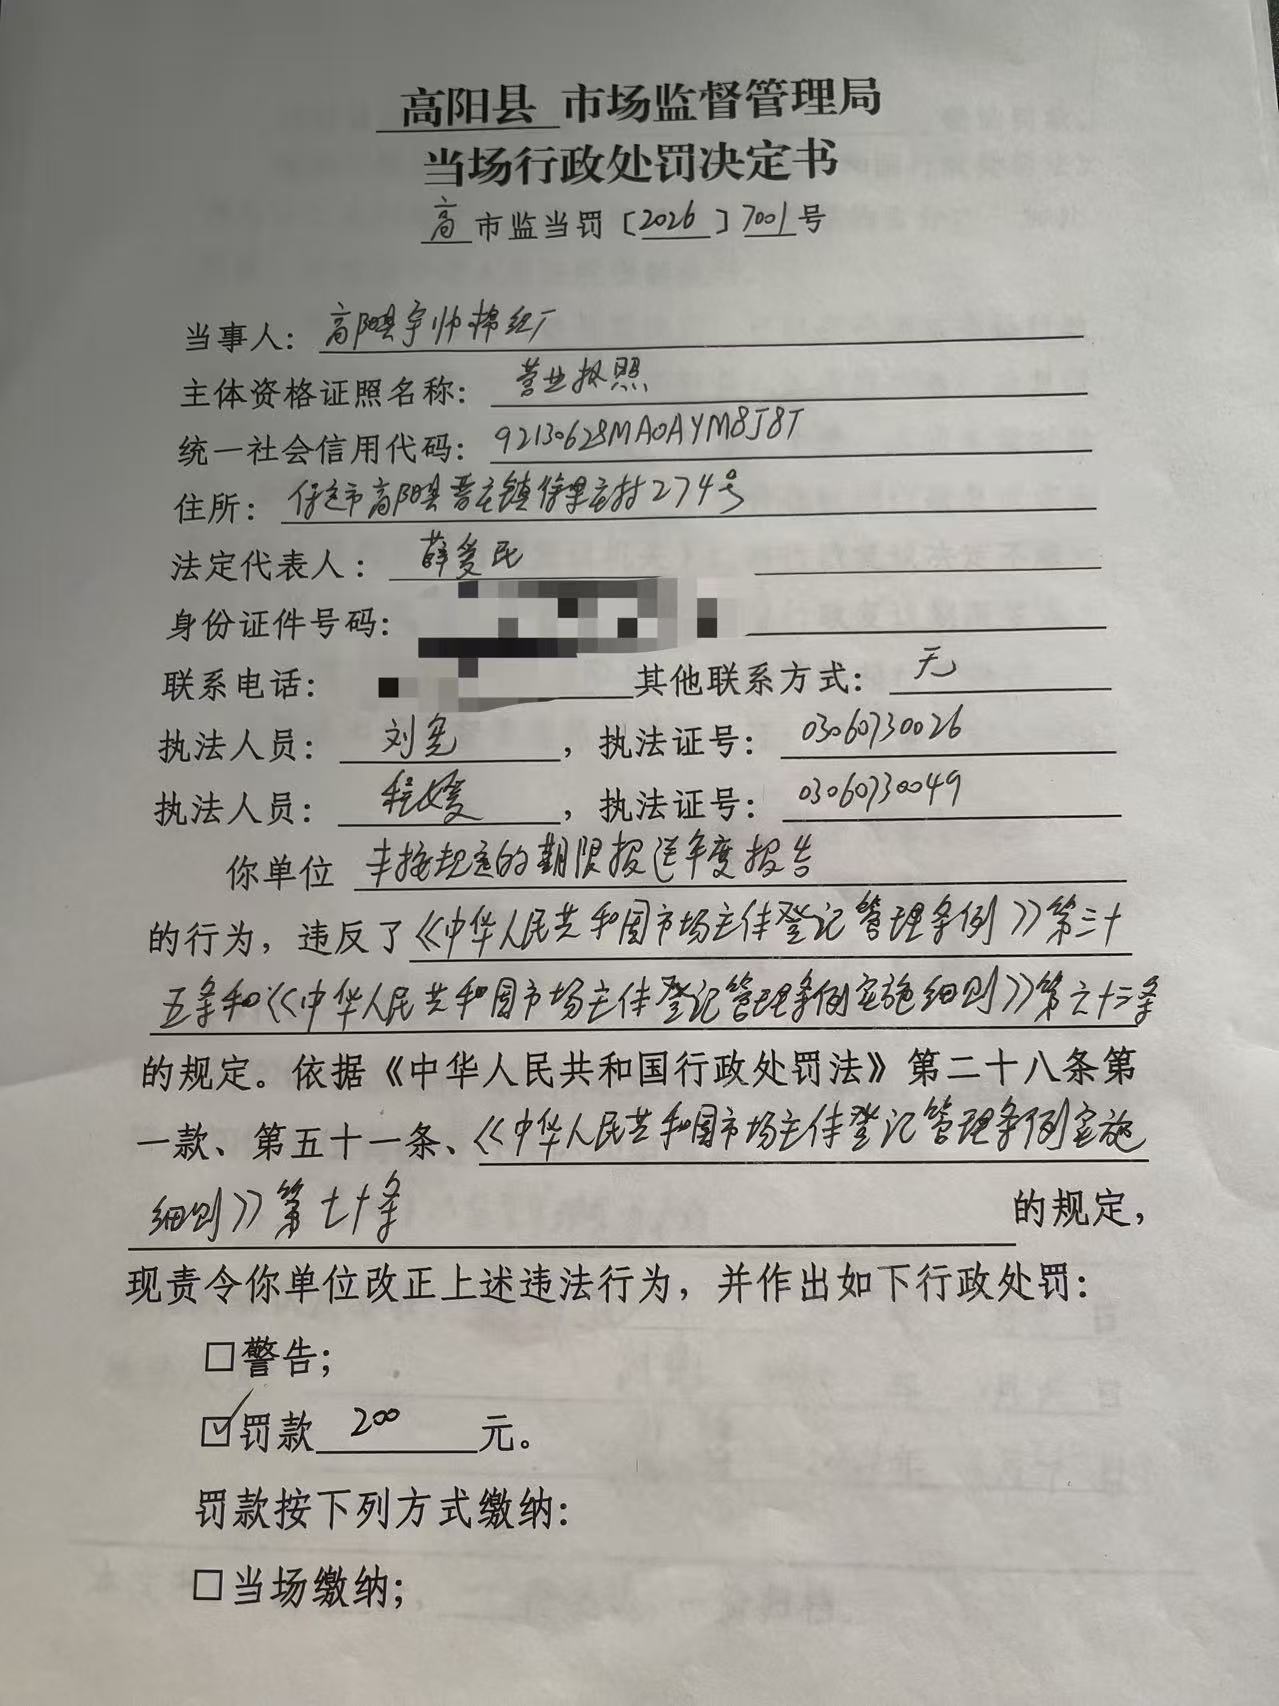 高阳县 市场监督管理局
当场行政处罚决定书
高 市监当罚〔2026〕7001号
当事人：高阳县宇帅棉织厂
主体资格证照名称：营业执照
统一社会信用代码：92130628MA0AYM8J8T
住所：保定市高阳县晋庄镇徐果庄村274号
法定代表人：薛爱民
身份证件号码：
联系电话： 其他联系方式：无
执法人员：刘宪，执法证号：03060730026
执法人员：程媛，执法证号：03060730049
你单位 未按规定的期限报送年度报告
的行为，违反了《中华人民共和国市场主体登记管理条例》第三十
五条和《中华人民共和国市场主体登记管理条例实施细则》第六十三条
的规定。依据《中华人民共和国行政处罚法》第二十八条第
一款、第五十一条、《中华人民共和国市场主体登记管理条例实施
细则》第七十条 的规定，
现责令你单位改正上述违法行为，并作出如下行政处罚：
□警告；
☑罚款 200 元。
罚款按下列方式缴纳：
□当场缴纳；